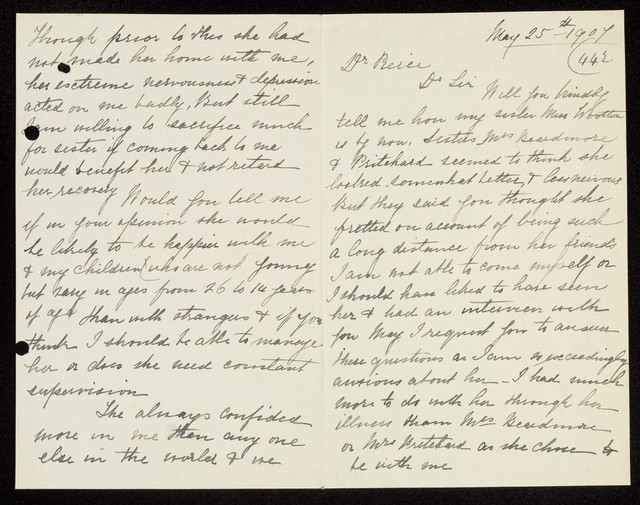 May 25th 1907
442
Dr Peirce
Dr Sir
Will you kindly
tell me how my sister Miss Wootton
is by now. Sisters Mrs Beardmore
& Pritchard seemed to think she
looked somewhat better, & less nervous
But they said you thought she
fretted on account of being such
a long distance from her friends
I am not able to come myself or
I should have liked to have seen
her & had an interview with
you May I request you to answer
these questions as I am so exceedingly
anxious about her - I had much
more to do with her through her
illness than Mrs Beardmore
or Mrs Pritchard as she chose to
be with me
Though prior to this she had
not made her home with me,
her extreme nervousness & depression
acted on me badly, But still
I am willing to sacrifice much
for sister if coming back to me
would benefit her & not retard
her recovery Would you tell me
if in your opinion she would
be likely to be happier with me
& my children (who are not young
but vary in ages from 26 to 14 years
of age than with strangers & if you
think I should be able to manage
her or does she need constant
supervision
She always confided
more in me than any one
else in the world & we